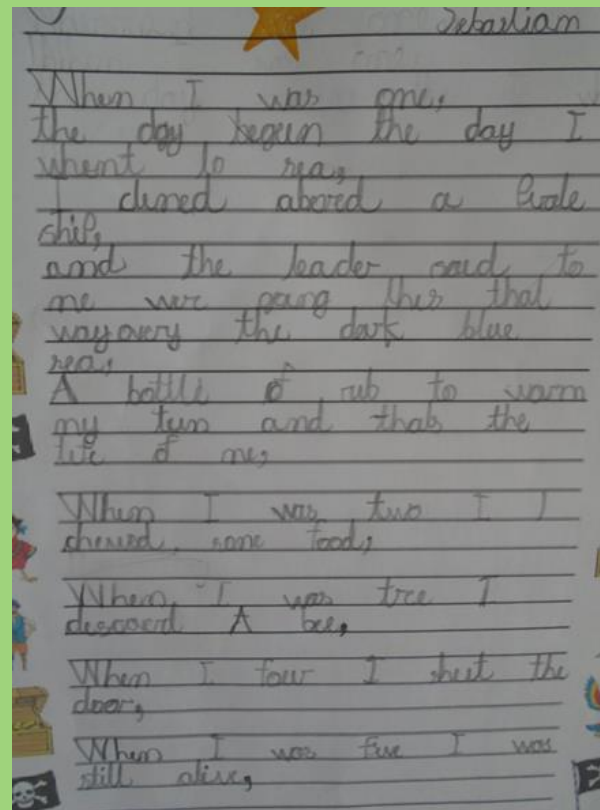 Sebastian
When I was one,
the day begun the day I
whent to sea,
I climed abored a
ship,
and the leader said to
me wer going this that
wayovery the dark blue
sea,
A bottle of rub to warm
my tum and thats the
life of me,
When I was two I
chewed some food,
When I was tree I
descoerd A bee,
When I four I shut the
door,
When I was five I was
still alive,